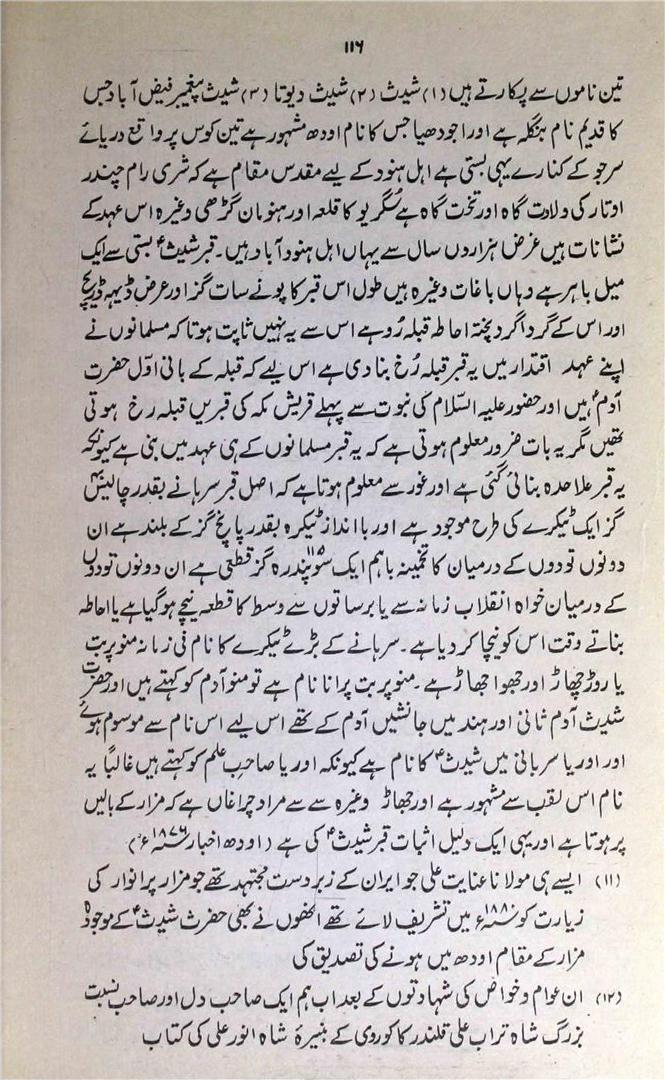 ۱۱۶
تین ناموں سے پکارتے ہیں (۱) شیث (۲) شیث دیوتا (۳) شیث پیغمبر فیض آباد جس
کا قدیم نام بنگلہ ہے اور اجودھیا جس کا نام اودھ مشہور ہے تین کوس پر واقع دریائے
سرجو کے کنارے یہی بستی ہے اہل ہنود کے لیے مقدس مقام ہے کہ شری رام چندر
اوتار کی ولادت گاہ اور تخت گاہ ہے سگریو کا قلعہ اور ہنومان گڑھی وغیرہ اس عہد کے
نشانات ہیں غرض ہزاروں سال سے یہاں اہل ہنود آباد ہیں۔ قبر شیثؑ بستی سے ایک
میل باہر ہے وہاں باغات وغیرہ ہیں طول اس قبر کا پونے سات گز اور عرض ڈیہہ
اور اس کے گرداگرد پختہ احاطہ قبلہ رُو ہے اس سے یہ نہیں ثابت ہوتا کہ مسلمانوں نے
اپنے عہد اقتدار میں یہ قبر قبلہ رُخ بنا دی ہے اس لیے کہ قبلہ کے بانی اوّل حضرت
آدمؑ ہیں اور حضور علیہ السّلام کی نبوت سے پہلے قریش مکہ کی قبریں قبلہ رخ ہوتی
تھیں مگر یہ بات ضرور معلوم ہوتی ہے کہ یہ قبر مسلمانوں کے ہی عہد میں بنی ہے کیونکہ
یہ قبر علاحدہ بنائی گئی ہے اور غور سے معلوم ہوتا ہے کہ اصل قبر سرہانے بقدر چالیس۴۰
گز ایک ٹیکرے کی طرح موجود ہے اور با انداز ٹیکرہ بقدر پانچ گز کے بلند ہے ان
دونوں تودوں کے درمیان کا تخمینہ باہم ایک سو پندرہ۱۱۵ گز قطعی ہے ان دونوں تودوں
کے درمیان خواہ انقلاب زمانہ سے یا برساتوں سے وسط کا قطعہ نیچے ہو گیا ہے یا احاطہ
بناتے وقت اس کو نیچا کر دیا ہے۔ سرہانے کے بڑے ٹیکرے کا نام فی زمانہ منو پربت
یا روڑ چھاڑ اور جھوا جھاڑ ہے۔ منو پربت پرانا نام ہے تو منو آدم کو کہتے ہیں اور حضرت
شیث آدم ثانی اور ہند میں جانشیں آدم کے تھے اس لیے اس نام سے موسوم ہوئے
اور اوریا سریانی میں شیثؑ کا نام ہے کیونکہ اوریا صاحب علم کو کہتے ہیں غالباً یہ
نام اس لقب سے مشہور ہے اور جھاڑ وغیرہ سے سے مراد چراغاں ہے کہ مزار کے بالیں
پر ہوتا ہے اور یہی ایک دلیل اثبات قبر شیثؑ کی ہے (اودھ اخبار ۱۸۷۶ء)
(۱۱) ایسے ہی مولانا عنایت علی جو ایران کے زبردست مجتہد تھے جو مزار پر انوار کی
زیارت کو ۱۸۸۰ء میں تشریف لائے تھے انھوں نے بھی حضرت شیثؑ کے موجودہ
مزار کے مقام اودھ میں ہونے کی تصدیق کی
(۱۲) ان عوام و خواص کی شہادتوں کے بعد اب ہم ایک صاحب دل اور صاحب نسبت
بزرگ شاہ تراب علی قلندر کاکوروی کے نبیرۂ شاہ انور علی کی کتاب